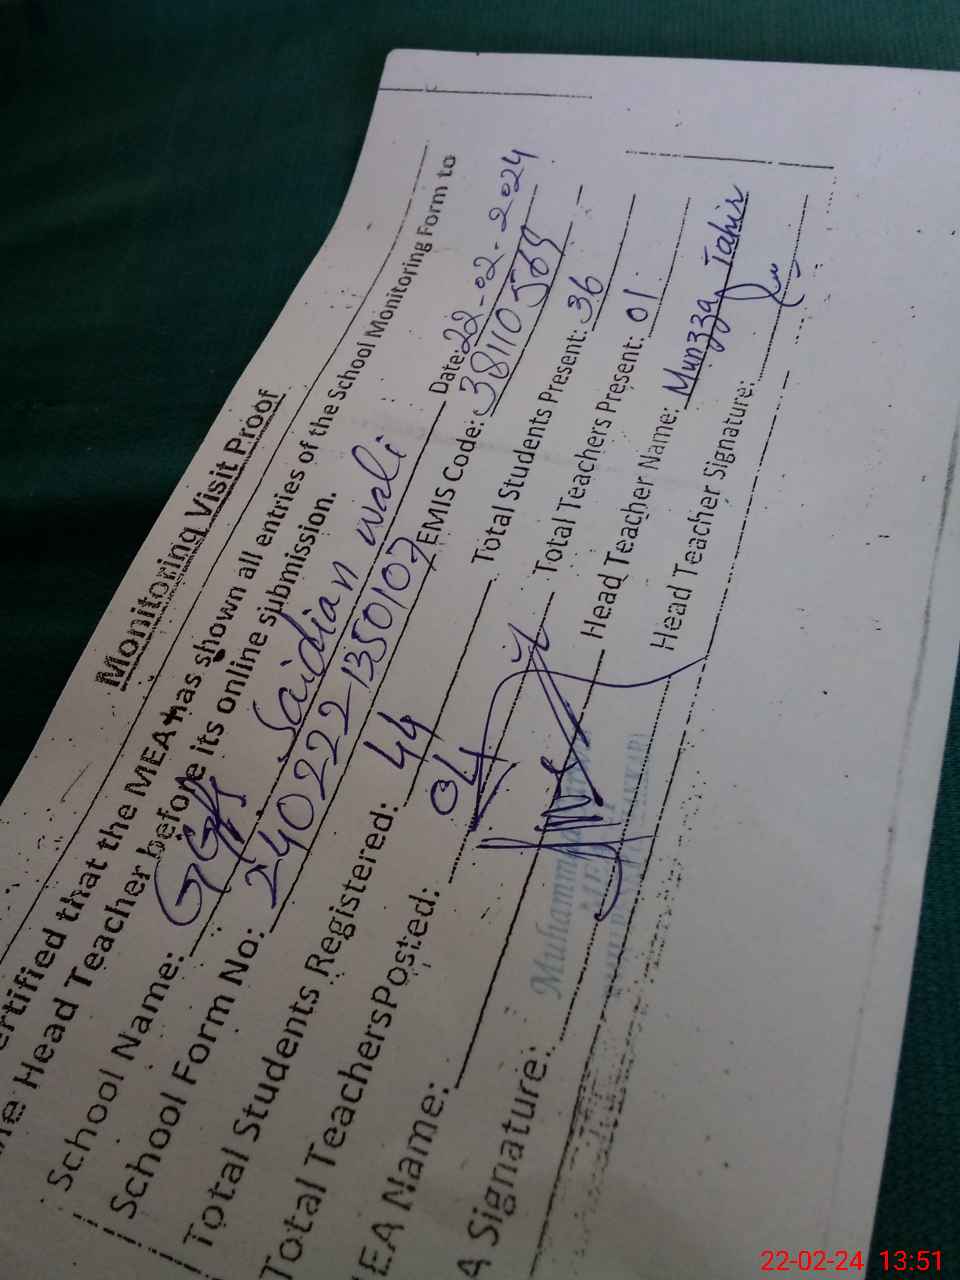 Monitoring Visit Proof
ertified that the MEA has shown all entries of the School Monitoring Form to
he Head Teacher before its online submission.
School Name: GGPS Saidian wali Date: 22-02-2024
School Form No: 240222-1350107 EMIS Code: 38110569
Total Students Registered: 44 Total Students Present: 36
Total Teachers Posted: 04 Total Teachers Present: 01
EA Name: Head Teacher Name: Munzza Tahir
A Signature: Head Teacher Signature:
Muhammad
22-02-24 13:51